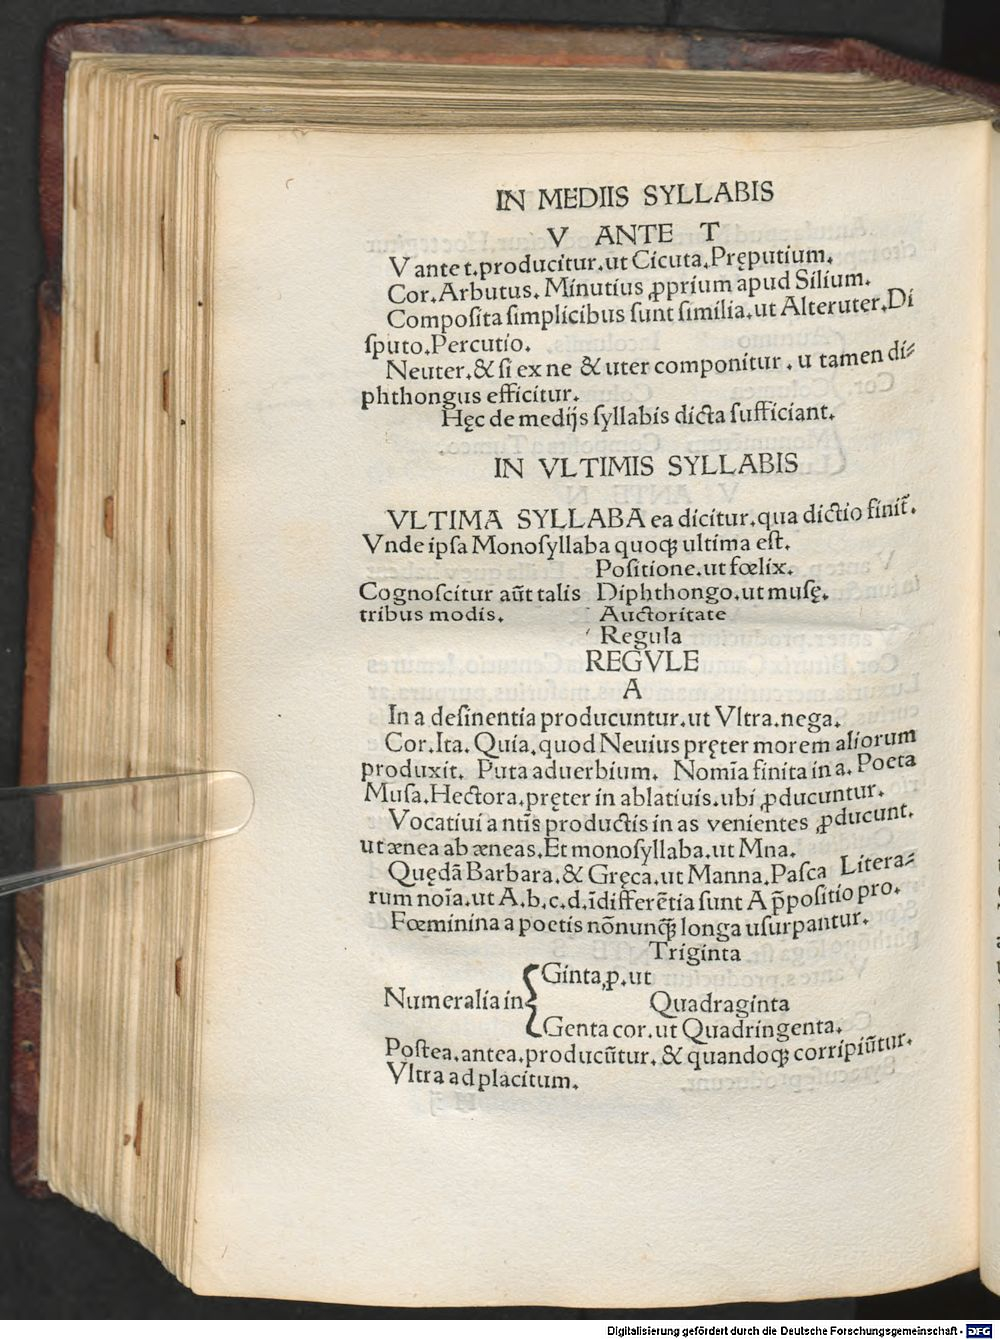 IN MEDIIS SYLLABIS
V ANTE T
V ante t.producitur.ut Cicuta.Pręputium.
Cor.Arbutus. Minutius ꝓprium apud Silium.
Compoſita ſimplicibus ſunt ſimilia.ut Alteruter.Di
ſputo.Percutio.
Neuter.& ſi ex ne & uter componitur . u tamen di⸗
phthongus efficitur.
Hęc de medijs ſyllabis dicta ſufficiant.
IN VLTIMIS SYLLABIS
VLTIMA SYLLABA ea dicitur.qua dictio finit᷑.
Vnde ipſa Monoſyllaba quoqꝫ ultima eſt.
Poſitione.ut fœlix.
Cognoſcitur aūt talis Diphthongo.ut muſę.
tribus modis. Auctoritate
Regula
REGVLE
A
In a deſinentia producuntur.ut Vltra.nega.
Cor.Ita. Quia.quod Neuius pręter morem aliorum
produxit. Puta aduerbium. Nomīa finita in a. Poeta
Muſa.Hectora.pręter in ablatiuis.ubi ꝓducuntur.
Vocatiui a ntīs productis in as venientes ꝓducunt.
ut ænea ab æneas.Et monoſyllaba.ut Mna.
Quędā Barbara.& Gręca.ut Manna.Paſca Litera⸗
rum noīa.ut A.b.c.d.īdifferētia ſunt A p̄poſitio pro.
Fœminina a poetis nōnunqꝫ longa uſurpantur.
Triginta
Ginta.p.ut
Numeralia in Quadraginta
Genta cor.ut Quadringenta.
Poſtea.antea.producūtur. & quandoqꝫ corripiūtur.
Vltra ad placitum.
Digitalisierung gefördert durch die Deutsche Forschungsgemeinschaft - DFG